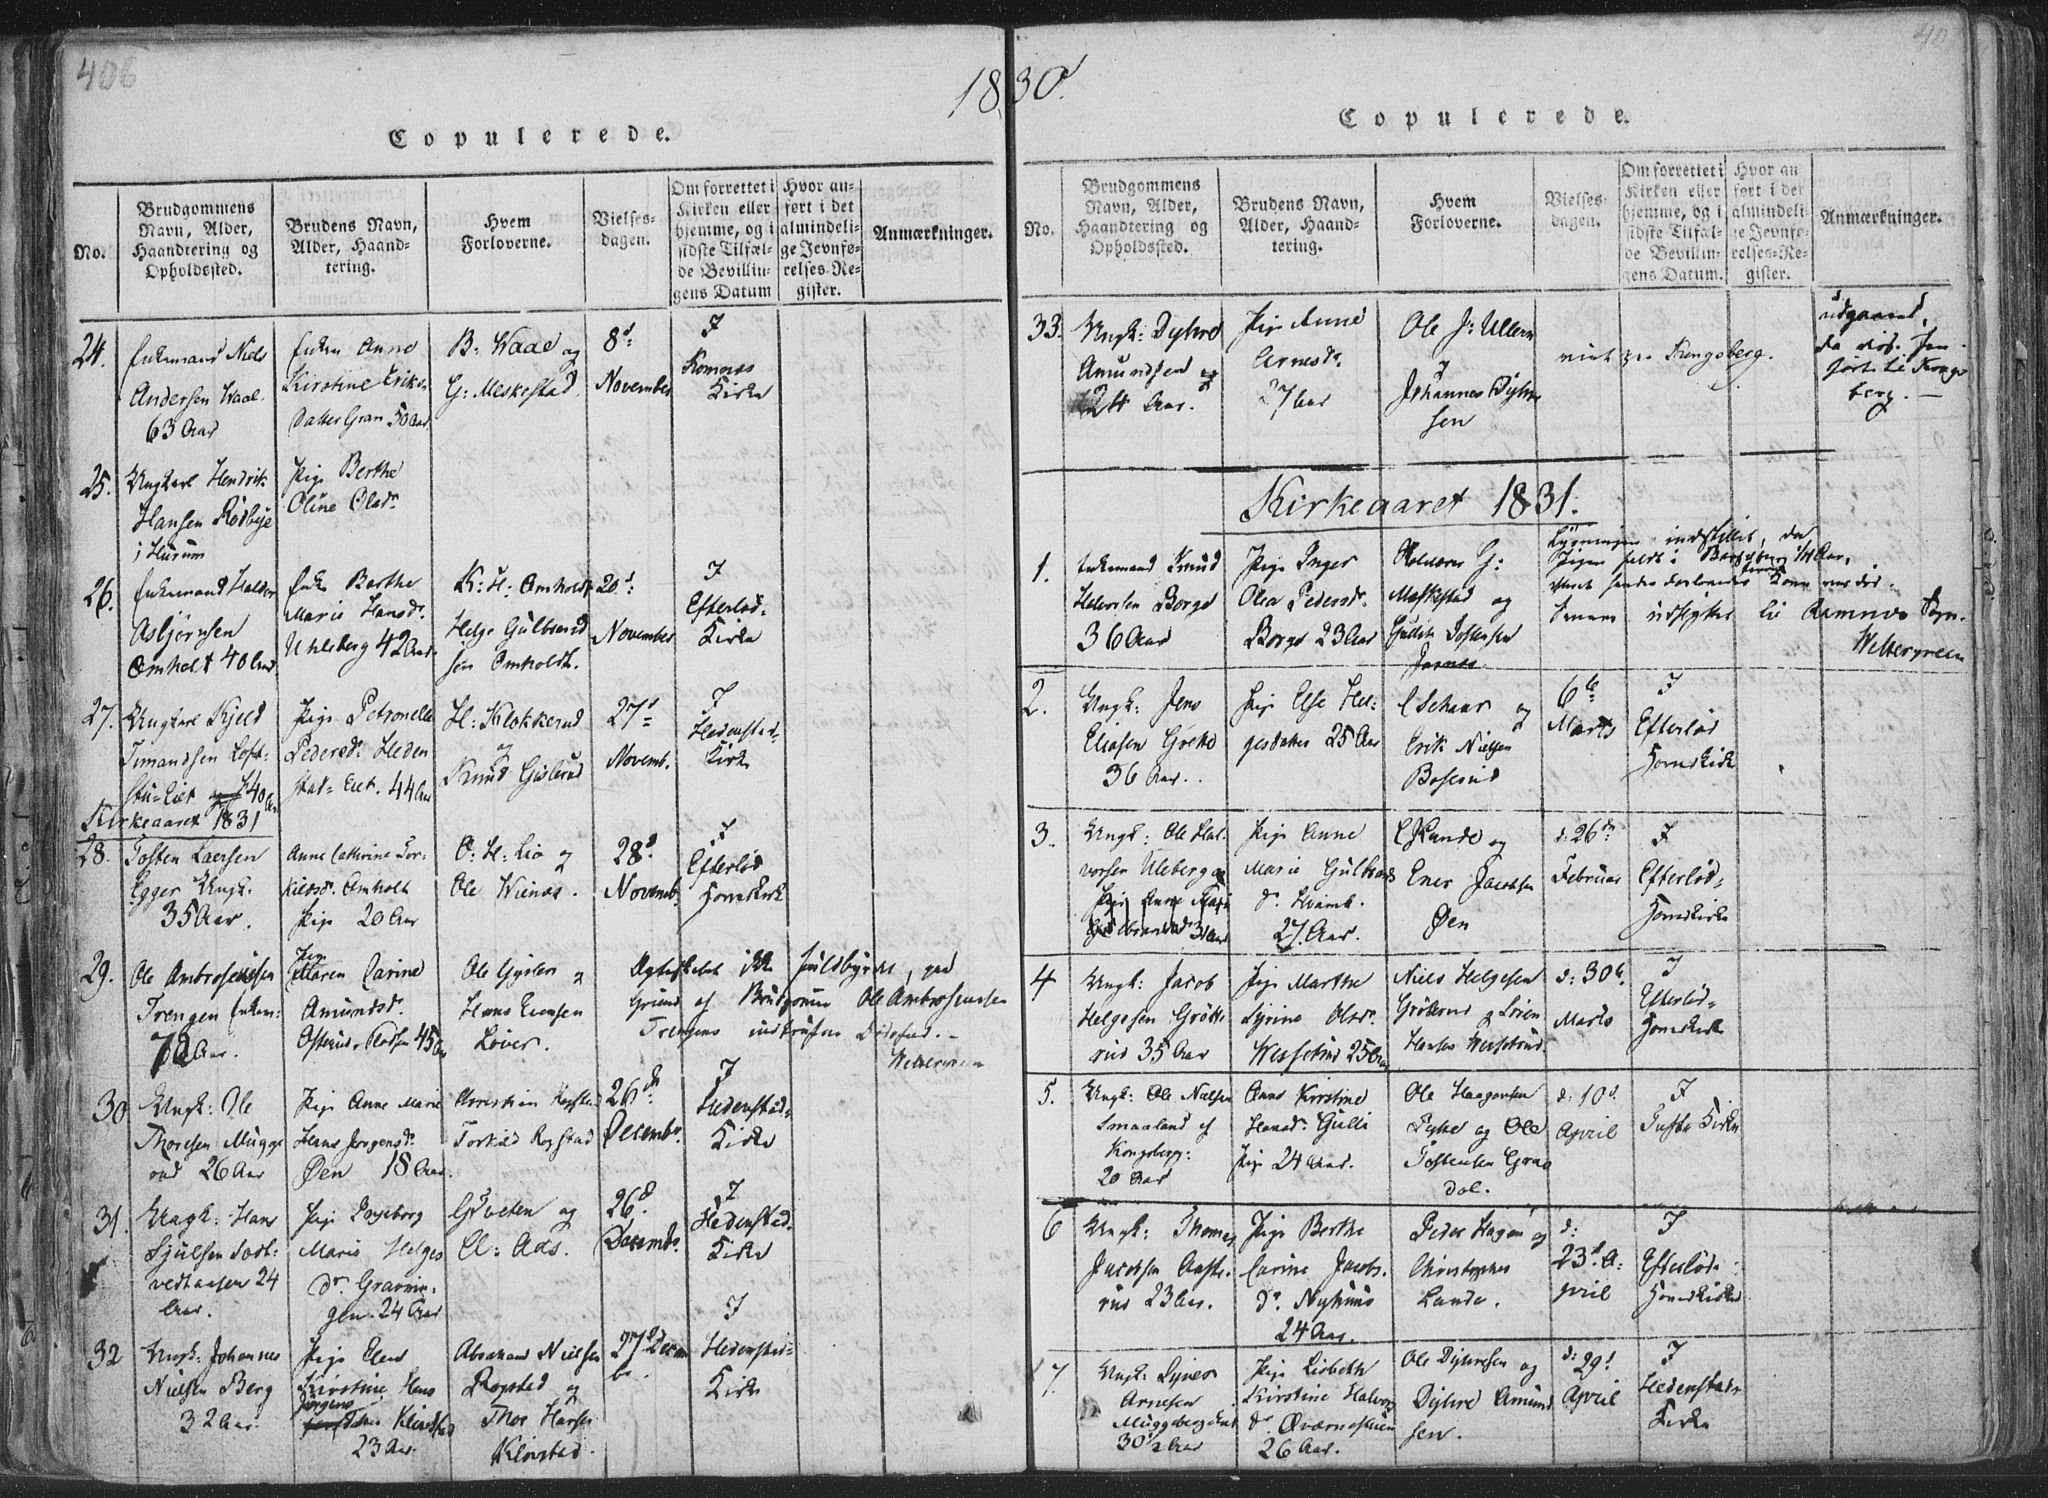 406
1830.
Copulerede.
No.
Brudgommens
Navn, Alder,
Haandtering og
Opholdssted.
Brudens Navn,
Alder, Haand-
tering.
Hvem
Forloverne.
Vielses-
dagen.
Om forrettet i
Kirken eller
hjemme, og i
sidste Tilfæl-
de Bevillin-
gens Datum
Hvor an-
ført i det
almindeli-
ge Jevnfø-
relses-Re-
gister.
Anmærkninger.
24.
Enkemand Niels
Andersen Waal
63 Aar
Enken Anne
Kirstine Eriks-
Datter Gran 50 Aar
B: Waae og
G: Meskestad.
8d
November
I
Komnes
Kirke
25.
Ungkarl Hendrik
Hansen Rødbye
i Hurum
Pige Berthe
Oline Olsdr
26.
Enkemand Halvor
Asbjørnsen
Omholt 40 Aar
Enke Berthe
Marie Hansdr
Uhlsberg 42 Aar
K: H: Omholt
Helge Gulbrand
sen Omholdt.
20d
November
I
Efterløds
Kirke
27.
Ungkarl Kjeld
Simandsen Loft-
stu-Eiet 40 Aar
Pige Petronelle
Pedersdr Heden
stad-Eiet. 44 Aar
H: Klokkerud
og
Knud Gislerud
27d
Novemb.
I
Hedenstad
Kirke
Kirkeaaret 1831
28.
Tosten Laersen
Egger Ungk.
35 Aar.
Anne Cathrine Tor-
kildsdr Omholt
Pige 20 Aar
O: H: Lia og
Ole Wienes.
28d
Novemb.
I
Efterløds
Hovedkirke
29.
Ole Ambrosiussen
Trengen Enkem:
70 Aar.
Pige
Maren Karine
Amundsdr
45 Aar
Ole Gislen og
Hans Evensen
Løver.
Ægteskabet ikke fuldbyrdet, paa
Grund af Brudgommen Ole Ambrosiussen
Trengens indtrufne Dødsfald.-
Wettergreen
30
Ungk: Ole
Thoresen Mugge
rud 26 Aar
Pige Anne Marie
Hans Jørgensdr
Øen 18 Aar.
Christian Rogstad
Torkild Rogstad
26d
Decembr.
I
Hedenstad
Kirke
31.
Ungk: Hans
24
Aar.
Pige Ingeborg
Marie Helges
dr Gravnin-
gen. 24 Aar
Gisleten og
Cl: Aas.
26d
Decembr.
I
Hedenstad
Kirke
32
Ungk: Johannes
Nielsen Berg
32 Aar
Pige Elen
Kirstine Hans
Jørgens
datter Klevstad
23 Aar
Abraham Nielsen
Rogstad og
Thor Hansen
Klevstad.
27d Decem
br.
I
Hedenstad
Kirke
Copulerede.
No.
Brudgommens
Navn, Alder,
Haandtering og
Opholdssted.
Brudens Navn,
Alder, Haand-
tering.
Hvem
Forloverne.
Vielses-
dagen.
Om forrettet i
Kirken eller
hjemme, og i
sidste Tilfæl-
de Bevillin-
gens Datum.
Hvor an
ført i det
almindeli-
ge Jevnfø-
relses-Re-
gister.
Anmærkninger.
33.
Ungk: Dyhre
Amundsen og
24 Aar.
Pige Anne
Arnesdr
27 Aar
Ole J: Ullern
og
Johannes Dyhre
sen
viet paa Kongsberg.
udgaaed,
til Kongs
berg. —
Kirkeaaret 1831.
1.
Enkemand Knud
Helversen Borge
36 Aar
Pige Inger
Olea Pedersdr
Borge 23 Aar
Halvor G:
Meskestad og
Gullik Tostensen
Jarnes
Lysningen indstillet, da
Wettergreen
2.
Ungk: Jens
Eliasen Grekd
36 Aar.
Pige Else Hel-
gesdatter 25 Aar
C Schaar og
Erik Nielsen
Boserud
6te
Marts
I
Efterløds
Hovedkirke
3.
Ungk: Ole Hal-
vorsen Uleberg og
31 Aar
Pige Anne
Marie Gulbrands
dr Hvamb.
27 Aar.
C Hande og
Ener Jacobsen
Øen
d: 26de
Februar
I
Efterløds
Hovedkirke
4
Ungk: Jacob
Helgesen Grøtte
rud 35 Aar
Pige Marthe
Syrine Olsdr
Wessetrud 25 Aar
Niels Helgesen
Grøterud og Søren
Hansen Wessetrud.
d: 30te
Marts
I
Efterløds
Hovedkirke
5.
Ungk: Ole Nielsen
Smaaland af
Kongsberg:
20 Aar
Anne Kirstine
Hansdr Gulli
Pige 24 Aar.
Ole Haagensen
Dyhre og Ole
Tostensen Graa
dol.
d: 10d
April
I
Tufte Kirke
6
Ungk: Thomas
Jacobsen Aaste-
rud 23 Aar.
Pige Berthe
Carine Jacobs-
dr Nyhuus
24 Aar.
Peder Hagen og
Christopher
Lande.
d:
23d A-
pril
I
Efterløds
Hovedkirke
7.
Ungk: Syver
Arnesen
Muggeberg Eiet
30½ Aar
Pige Lisbeth
Kirstine Halvors
dr Qværnestuen
26 Aar.
Ole Dyhresen og
Dyhre Amund
sen.
d: 29d
April
I
Hedenstads
Kirke